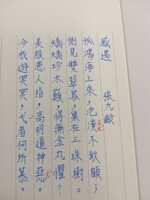 感遇　張九齡
孤鴻海上來，池潢不敢顧；
側見雙翠鳥，巢在三珠樹。
矯矯珍木巔，得無金丸懼？
美服患人指，高明逼神惡。
今我遊冥冥，弋者何所慕。